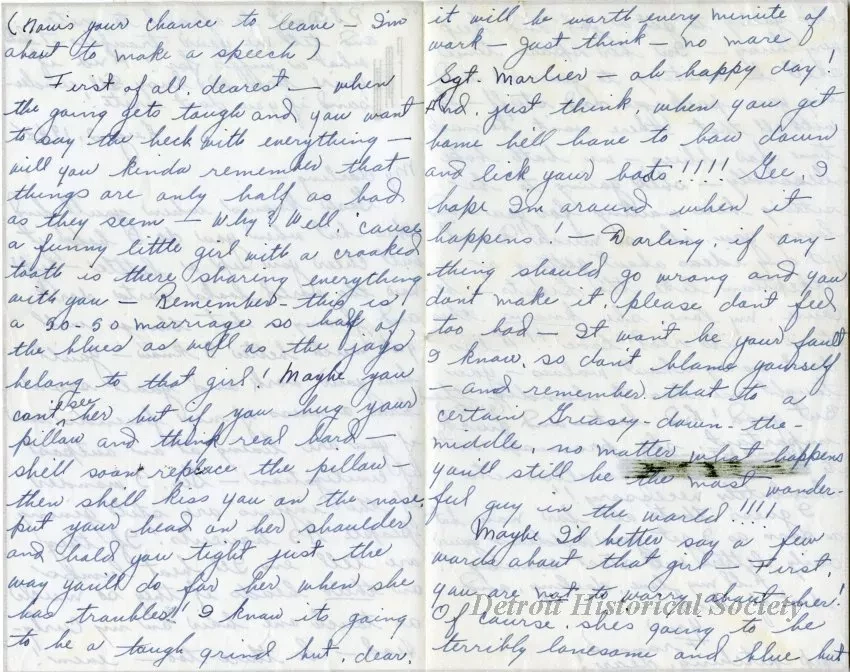 (Now's your chance to leave – I'm
about to make a speech)
First of all, dearest – when
the going gets tough and you want
to say the heck with everything –
will you kinda remember that
things are only half as bad
as they seem – Why? Well, 'cause
a funny little girl with a crooked
tooth is there sharing everything
with you – Remember – this is
a 50-50 marriage so half of
the blues as well as the joys
belong to that girl! Maybe you
can't see her but if you hug your
pillow and think real hard –
she'll soon replace the pillow –
then she'll kiss you on the nose,
put your head on her shoulder
and hold you tight just the
way you'll do for her when she
has troubles!! I know its going
to be a tough grind but, dear,
it will be worth every minute of
work – Just think – no more
Sgt. Marlier – oh happy day!
And, just think, when you get
home he'll have to bow down
and lick your boots!!!! Gee, I
hope I'm around when it
happens! – Darling, if any-
thing should go wrong and you
don't make it, please don't feel
too bad – It won't be your fault
I know, so don't blame yourself
– and remember that to a
certain Greasy-down-the-
middle, no matter what happens
you'll still be the most wonder-
ful guy in the world!!!!
Maybe I'd better say a few
words about that girl – First,
you are not to worry about her!
Of course, she's going to be
terribly lonesome and blue but
Detroit Historical Society